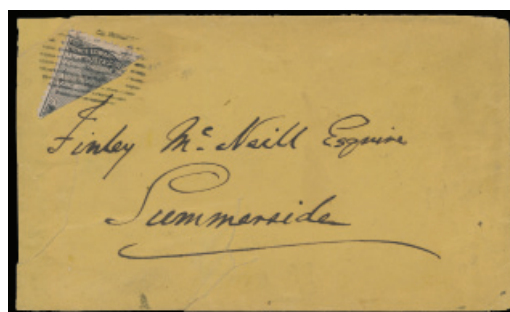 Finley Mc. Neill Esquire
Summerside